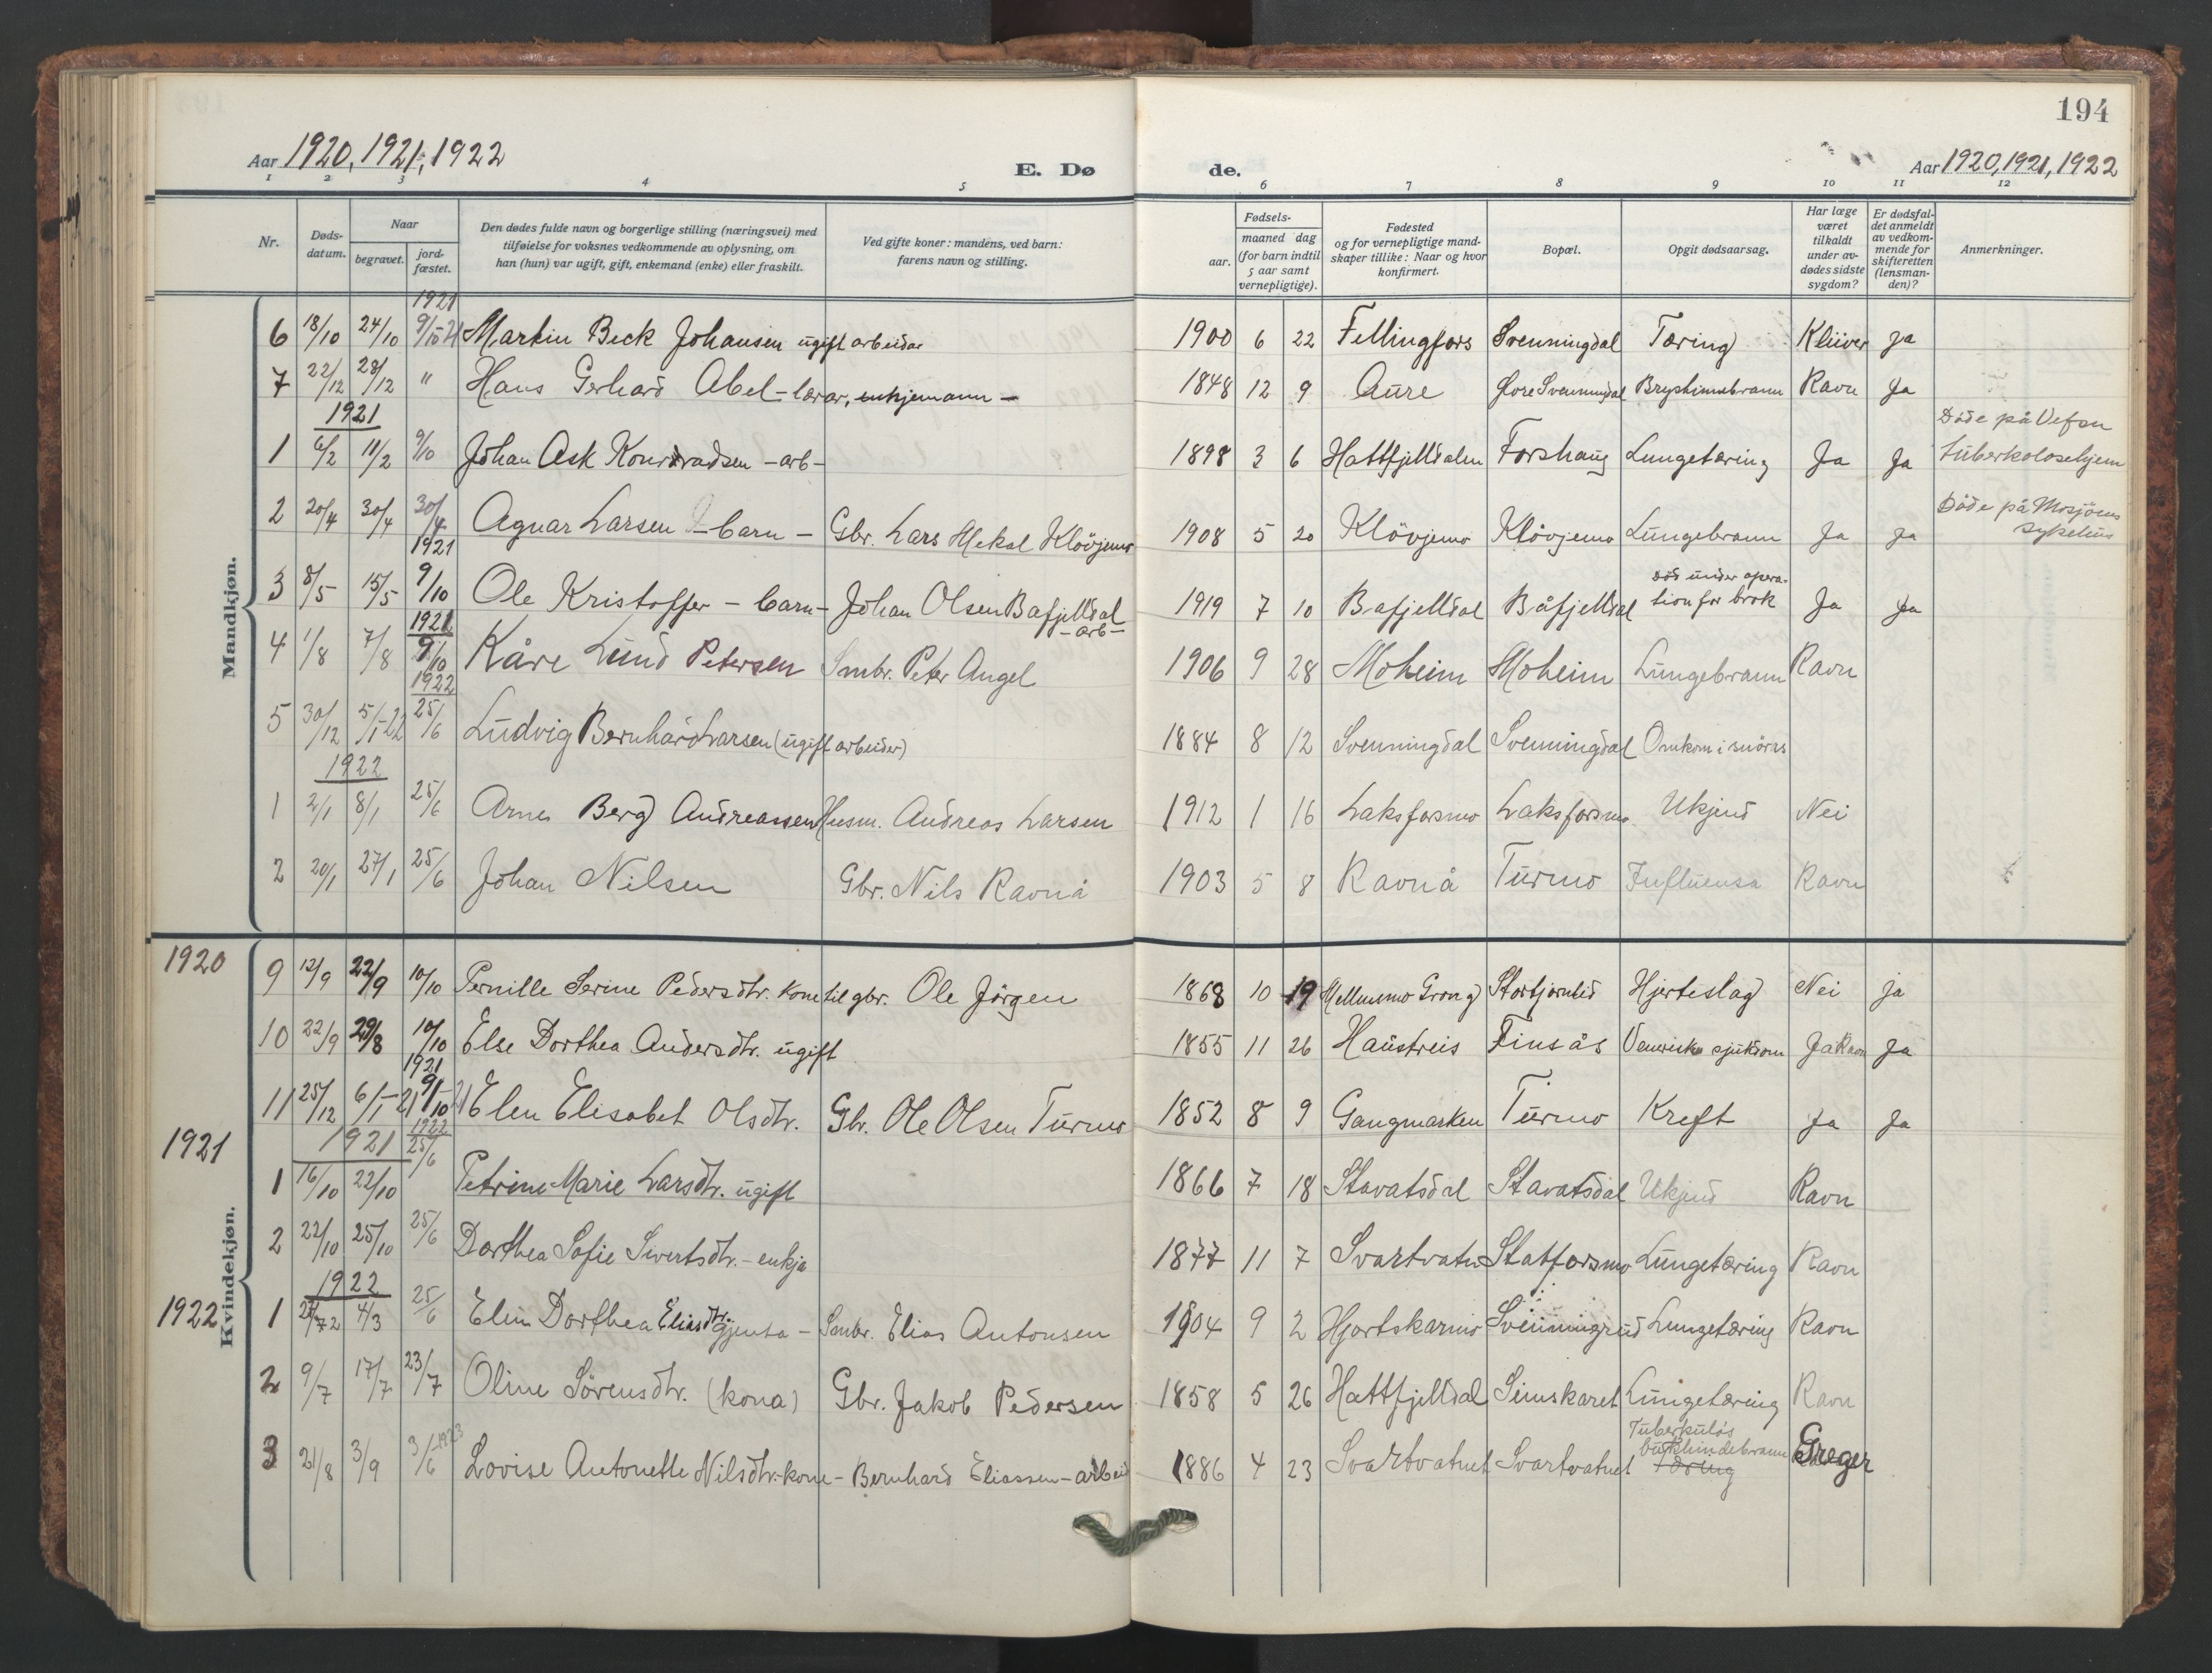 194
Aar 1920, 1921, 1922
E. Dø de.
Aar 1920, 1921, 1922
1 2 3 4 5 6 7 8 9 10 11 12
Nr. Døds-datum. Naar begravet. jord-fæstet. Den dødes fulde navn og borgerlige stilling (næringsvei) med tilføielse for voksnes vedkommende av oplysning, om han (hun) var ugift, gift, enkemand (enke) eller fraskilt. Ved gifte koner: mandens, ved barn: farens navn og stilling. Fødsels- aar. maaned dag (for barn indtil 5 aar samt vernepligtige). Fødested og for vernepligtige mandskaper tillike: Naar og hvor konfirmert. Bopæl. Opgit dødsaarsag. Har læge været tilkaldt under avdødes sidste sygdom? Er dødsfaldet anmeldt av vedkommende for skifteretten (lensmanden)? Anmerkninger.
Mandkjøn.
1921
6 18/10 24/10 9/10-21 Martin Beck Johansen ugift arbeidar 1900 6 22 Fellingfors Svenningdal Tæring Klüver Ja
7 22/12 28/12 " Hans Gerhard Abel - lærar, enkjemann - 1848 12 9 Aure Øvre Svenningdal Brysthinnebrann Ravn Ja
1921
1 6/2 11/2 9/10 Johan Ask Konradsen - arb - 1898 3 6 Hattfjelldalen Forshaug Lungetæring Ja Ja Døde på Vefsn tuberkolosehjem
2 20/4 30/4 30/4 Agnar Larsen - barn - Gbr. Lars Mekal Klövjemo 1908 5 20 Klövjemo Klövjemo Lungebrann Ja Ja Döde på Mosjöens sykehus
1921
3 8/5 15/5 9/10 Ole Kristoffer - barn - Johan Olsen Bafjelldal - arb - 1919 7 10 Bafjelldal Båfjelldal Död under operation for brok Ja Ja
1921
4 1/8 7/8 9/10 Kåre Lund Petersen Smbr. Peter Angel 1906 9 28 Moheim Moheim Lungebrann Ravn
1922
5 30/12 5/1-22 25/6 Ludvig Bernhard Larsen (ugift arbeider) 1884 8 12 Svenningdal Svenningdal Omkom i snöras
1922
1 2/1 8/1 25/6 Arne Berg Andreassen Husm. Andreas Larsen 1912 1 16 Laksforsmo Laksforsmo Ukjend Nei
2 20/1 27/1 25/6 Johan Nilsen Gbr. Nils Ravnå 1903 5 8 Ravnå Turmo Influensa Ravn
Kvindekjøn.
1920 9 12/9 22/9 10/10 Pernille Serine Pedersdtr. kone til gbr. Ole Jörgen 1868 10 19 Mellumsmo Grong Stortjørnlid Hjerteslag Nei Ja
10 22/9 29/8 10/10 Else Dorthea Andersdtr. ugift 1855 11 26 Haustreis Finsås Venerisk sjukdom Ja Ravn Ja
1921
11 25/12 6/1-21 9/10 21 Elen Elisabet Olsdtr. Gbr. Ole Olsen Turmo 1852 8 9 Gangmarken Turmo Kreft Ja Ja
1921 1921 1922
1 16/10 22/10 25/6 Petrine Marie Larsdtr. ugift 1866 7 18 Stavatsdal Stavatsdal Ukjend Ravn
2 22/10 25/10 25/6 Dorthea Sofie Sivertsdtr. - enkja 1877 11 7 Svartvatn Statforsmo Lungetæring Ravn
1922
1922 1 4/3 25/6 Elin Dorthea Eliasdtr. gjenta - Smbr. Elias Antonsen 1904 9 2 Hjortskarmo Lungetæring Ravn
2 9/7 17/7 23/7 Oline Sörensdtr. (kona) Gbr. Jakob Pedersen 1858 5 26 Hattfjelldal Simskaret Lungetæring Ravn
3 21/8 3/9 3/6-1923 Lovise Antonette Nilsdtr. - kone - Bernhard Eliassen - arbeid 1886 4 23 Svartvatnet Svartvatnet Tuberkuløs bukhindebrann Tæring Greger